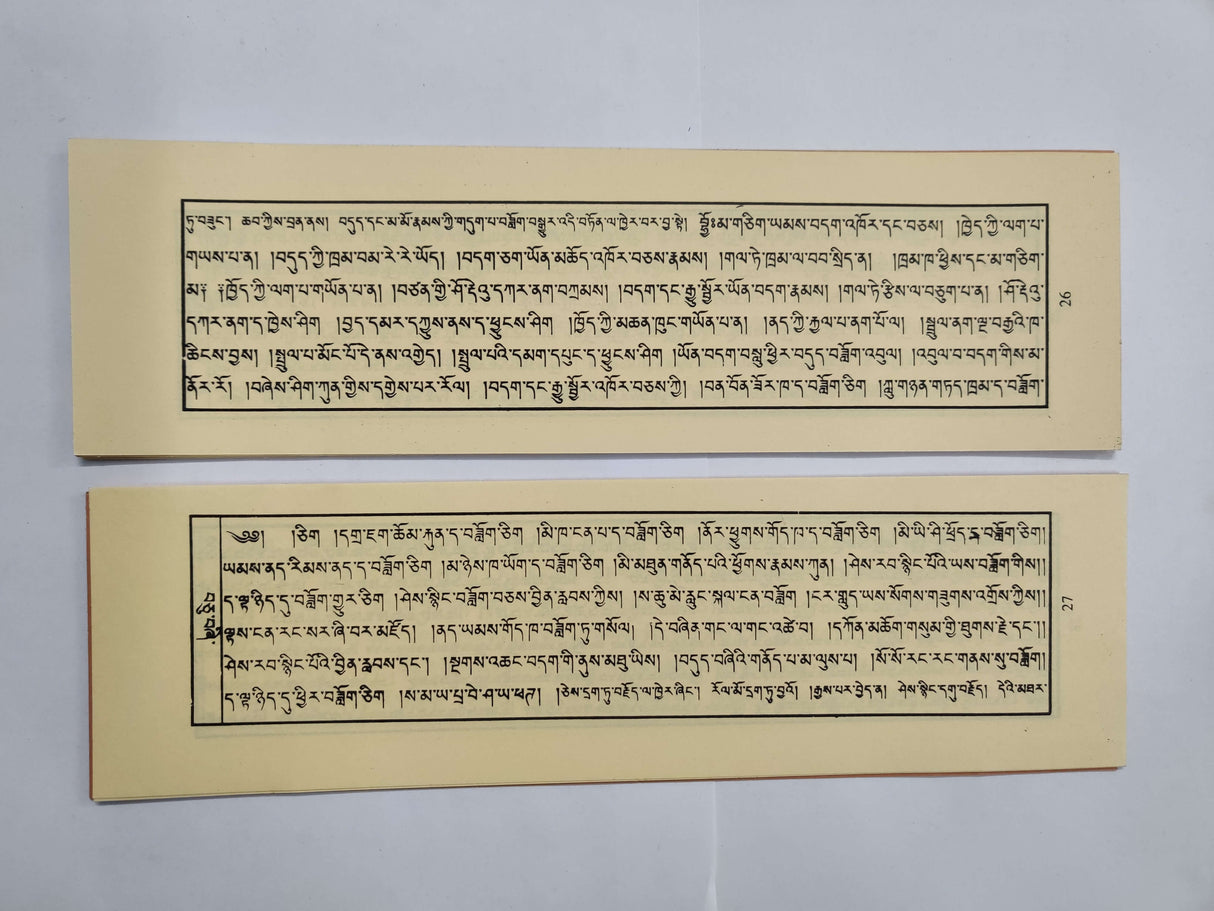 ཏུ་བཟུང་། ཆབ་ཀྱིས་བྲན་ནས། བདུད་དང་མ་མོ་རྣམས་ཀྱི་གདུག་པ་བཟློག་བསྒྱུར་འདི་བཏོན་ལ་ཁྱེར་བར་བྱ་སྟེ། བྷྱོཿམ་གཅིག་ཡམས་བདག་འཁོར་དང་བཅས། །ཁྱེད་ཀྱི་ལག་པ་
གཡས་པ་ན། །བདུད་ཀྱི་ཁྲམ་བམ་རེ་རེ་ཡོད། །བདག་ཅག་ཡོན་མཆོད་འཁོར་བཅས་རྣམས། །གལ་ཏེ་ཁྲམ་ལ་བབ་སྲིད་ན། །ཁྲམ་ཁ་ཕྱིས་དང་མ་གཅིག་
མ༔ ༔ཁྱོད་ཀྱི་ལག་པ་གཡོན་པ་ན། །བཙན་གྱི་ཤོ་རྡེའུ་དཀར་ནག་བཀྲམས། །བདག་དང་རྒྱུ་སྦྱོར་ཡོན་བདག་རྣམས། །གལ་ཏེ་རྩིས་ལ་བཅུག་པ་ན། །ཤོ་རྡེའུ་
དཀར་ནག་ད་ཁྱེས་ཤིག །བྱད་དམར་དཀྱུས་ནས་ད་ཕྱུངས་ཤིག །ཁྱོད་ཀྱི་མཆན་ཁུང་གཡོན་པ་ན། །ནད་ཀྱི་རྐྱལ་པ་ནག་པོ་ལ། །སྦྲུལ་ནག་ལྔ་བརྒྱའི་ཁ་
ཆིངས་བྱས། །སྦྲུལ་པ་མོང་པོ་དེ་ནས་འགྱེད། །སྤྲུལ་པའི་དམག་དཔུང་ད་ཕྱུངས་ཤིག །ཡོན་བདག་བསླུ་ཕྱིར་བདུད་བཟློག་འབུལ། །འབུལ་བ་བདག་གིས་མ་
ནོར་རོ། །བཞེས་ཤིག་ཀུན་གྱིས་དགྱེས་པར་རོལ། །བདག་དང་རྒྱུ་སྦྱོར་འཁོར་བཅས་ཀྱི། །བན་བོན་ཟོར་ཁ་ད་བཟློག་ཅིག །ཀླུ་གཉན་གཏད་ཁྲམ་ད་བཟློག་
26
༄༅། །ཅིག །དགྲ་ཇག་ཆོམ་རྐུན་ད་བཟློག་ཅིག །མི་ཁ་ངན་པ་ད་བཟློག་ཅིག །ནོར་ཕྱུགས་གོད་ཁ་ད་བཟློག་ཅིག །མི་ཡི་ཤི་ཕྲོད་ད་བཟློག་ཅིག།
ཡམས་ནད་རིམས་ནད་ད་བཟློག་ཅིག །མ་ཉེས་ཁ་ཡོག་ད་བཟློག་ཅིག །མི་མཐུན་གནོད་པའི་ཕྱོགས་རྣམས་ཀུན། །ཤེས་རབ་སྙིང་པོའི་ཡས་བཟློག་གིས།།
ད་ལྟ་ཉིད་དུ་བཟློག་གྱུར་ཅིག །ཤེས་སྙིང་བཟློག་བཅས་བྱིན་རླབས་ཀྱིས། །ས་ཆུ་མེ་རླུང་སྐལ་ངན་བཟློག །ངར་གླུད་ཡས་སོགས་གཟུགས་འགྲོས་ཀྱིས།།
ལྟས་ངན་རང་སར་ཞི་བར་མཛོད། །ནད་ཡམས་གོད་ཁ་བཟློག་ཏུ་གསོལ། །དེ་བཞིན་གང་ལ་གང་འཚེ་བ། །དཀོན་མཆོག་གསུམ་གྱི་ཐུགས་རྗེ་དང་།།
ཤེས་རབ་སྙིང་པོའི་བྱིན་རླབས་དང་། །སྔགས་འཆང་བདག་གི་ནུས་མཐུ་ཡིས། །བདུད་བཞིའི་གནོད་པ་མ་ལུས་པ། །སོ་སོ་རང་རང་གནས་སུ་བཟློག།
ད་ལྟ་ཉིད་དུ་ཕྱིར་བཟློག་ཅིག །ས་མ་ཡ་པྲ་བེ་ཤ་ཡ་ཕཊ། །ཅེས་དྲག་ཏུ་བརྗོད་ལ་ཁྱེར་ཞིང་། རོལ་མོ་དྲག་ཏུ་བྱའོ། །རྒྱས་པར་བྱེད་ན། ཤེས་སྙིང་དགུ་བརྗོད། དེའི་མཐར་
27